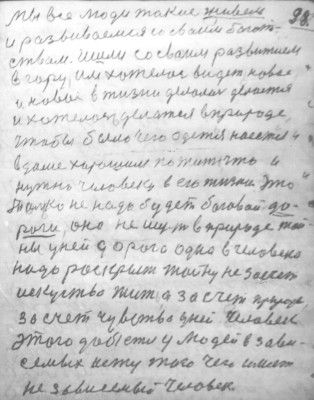 98.
мы все люди такие живем
и развиваемся со своим богат-
ствам. Шли со своим развитием
в гору, им хотелось видет новое
и новое в жизни делами делается
и хотелось делатся в природе,
чтобы было чего одется наестся и
в доме хорошим пожить, это и
нужно человеку в его жизни. Это
Только не надо будет боговой до-
роги, оно не ищут в природе тай-
ны у ней дорога одна в человека
надо раскрыть тайну не за счет
искуство жит, а за счет природе,
за счет чувства ней. Человек
этого добъется у людей в зави-
семых нету того чего имеет
не зависемый человек